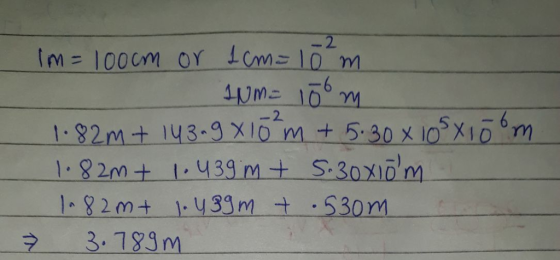 1m = 100cm or 1cm = 10⁻² m
1Nm = 10⁻⁶ m
1.82m + 143.9 × 10⁻² m + 5.30 × 10⁵ × 10⁻⁶ m
1.82m + 1.439m + 5.30×10⁻¹ m
1.82m + 1.439m + .530m
⇒ 3.789m